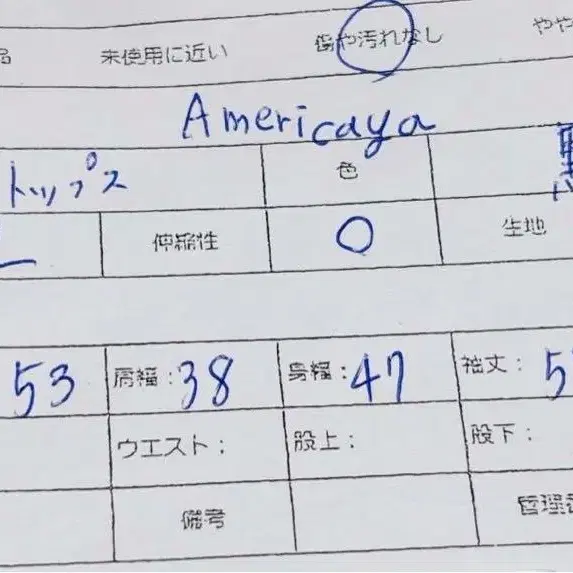 未使用に近い 傷や汚れなし やや
Americaya
トップス 色
伸縮性 O 生地
53 肩幅：38 身幅：47 袖丈：5
ウエスト： 股上： 股下：
備考 管理